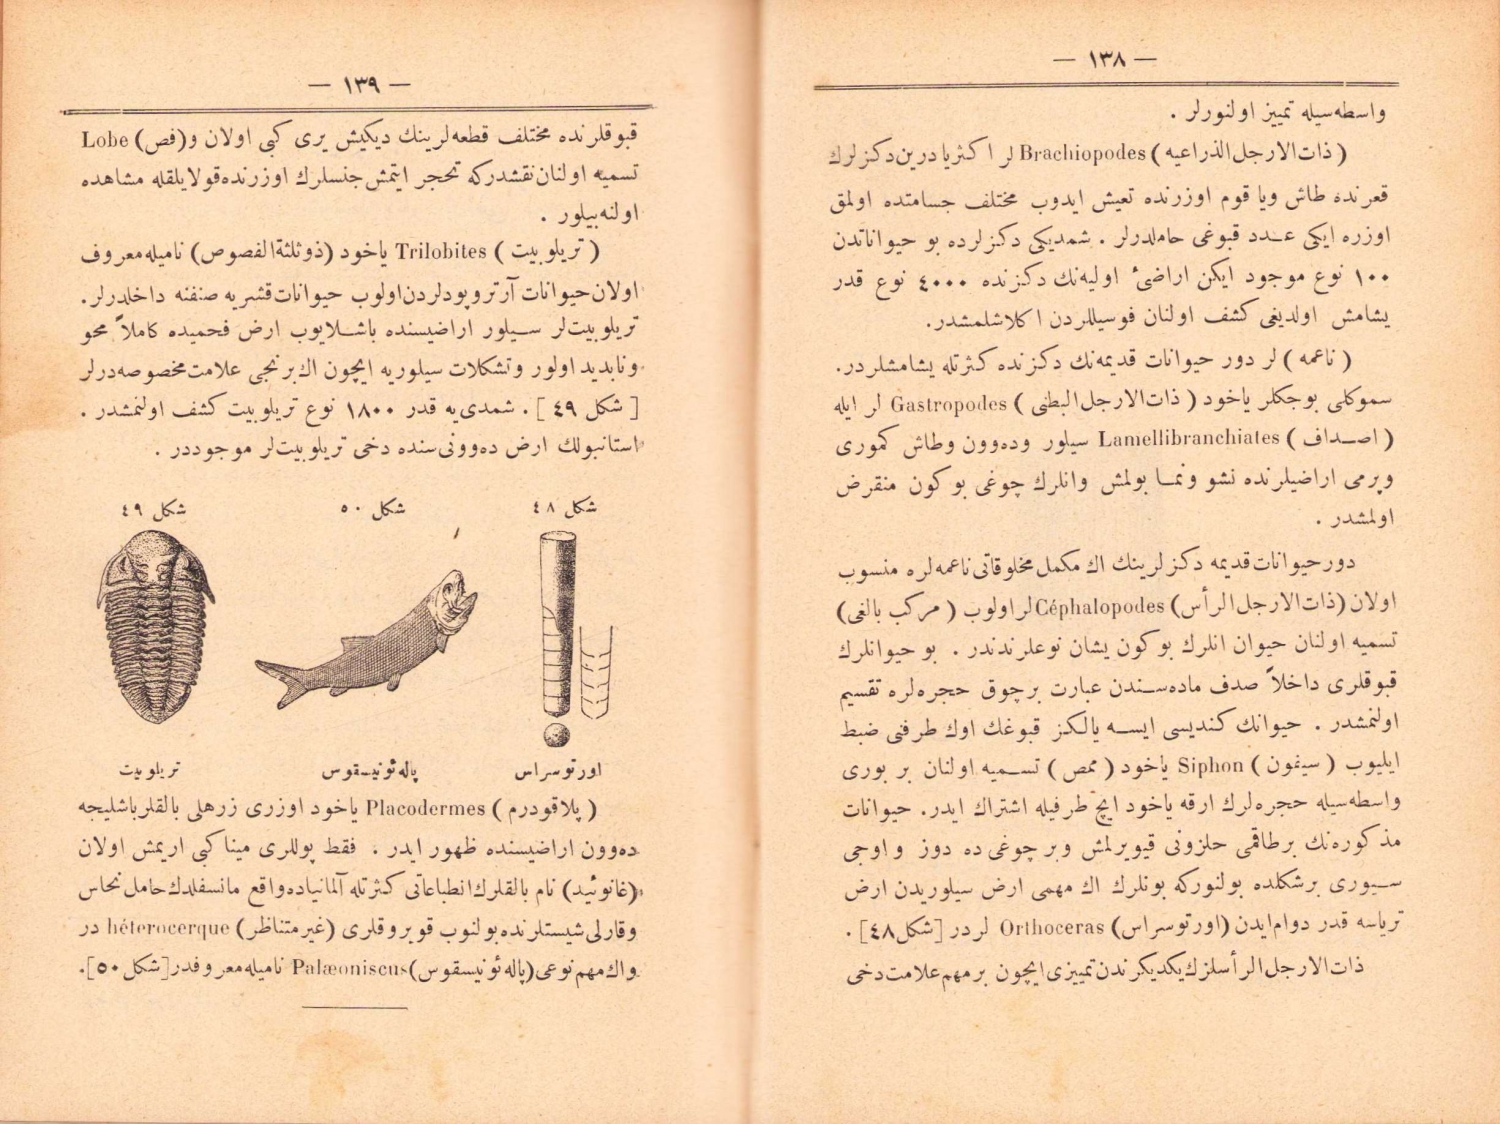 — ١٣٨ —
واسطه‌سیله تمییز اولنورلر .
( ذات‌الارجل‌الذراعیه ) Brachiopodes لر اکثریا درین دکزلرك
قعرنده طاش ویا قوم اوزرنده تعیش ایدوب مختلف جسامتده اولمق
اوزره ایکی عـدد قبوغی حاملدرلر . شمدیکی دکزلرده بو حیواناتدن
١٠٠ نوع موجود ایکن اراضئ اولیه‌نك دکزنده ٤٠٠٠ نوع قدر
یشامش اولدیغی کشف اولنان فوسیللردن اکلاشلمشدر.
( ناعمه ) لر دور حیوانات قدیمه‌نك دکزنده کثرتله یشامشلردر.
سموکلی بوجکلر یاخود ( ذات‌الارجل‌البطنی ) Gastropodes لر ایله
( اصـداف ) Lamellibranchiates سیلور وده‌وون وطاش کموری
وپرمی اراضیلرنده نشو ونمـا بولمش وانلرك چوغی بو کون منقرض
اولمشدر .
دور حیوانات قدیمه دکزلرینك اك مکمل مخلوقاتی ناعمه‌لره منسوب
اولان (ذات‌الارجل‌الرأس) Céphalopodes لر اولوب ( مرکب بالغی)
تسمیه اولنان حیوان انلرك بو کون یشان نوعلرندندر . بو حیوانلرك
قبوقلری داخلاً صدف ماده‌سـندن عبارت برچوق حجره‌لره تقسیم
اولنمشدر . حیوانك کندیسی ایسـه یالکز قبوغك اوك طرفنی ضبط
ایلیوب ( سیفون ) Siphon یاخود ( ممص ) تسـمیه اولنان بر بوری
واسطه‌سیله حجره‌لرك ارقه یاخود ایچ طرفیله اشتراك ایدر. حیوانات
مذکوره‌نك برطاقمی حلزونی قیویرلمش وبر چوغی ده دوز و اوجی
سـیوری برشکلده بولنورکه بونلرك اك مهمی ارض سیلوریدن ارض
تریاسه قدر دوام ایدن (اورتوسراس) Orthoceras لردر [شکل ٤٨] .
ذات‌الارجل‌الرأسلرك یکدیکرندن تمییزی ایچون برمهم علامت دخی
— ١٣٩ —
قبوقلرنده مختلف قطعه‌لرینك دیکیش یری کبی اولان و(فص) Lobe
تسمیه اولنان نقشدرکه تحجر ایتمش جنسلرك اوزرنده قولایلقله مشاهده
اولنه‌بیلور .
( تریلوبیت ) Trilobites یاخود (ذوثلثةالفصوص) نامیله معروف
اولان حیوانات آرتروپودلردن اولوب حیوانات قشریه صنفنه داخلدرلر.
تریلوبیت‌لر سـیلور اراضیسنده باشـلایوب ارض فحمیده کاملاً محو
ونابدید اولور وتشکلات سیلوریه ایچون اك برنجی علامت مخصوصه‌درلر
[ شکل ٤٩ ] . شمدی‌یه قدر ١٨٠٠ نوع تریلوبیت کشف اولنمشدر .
استانبولك ارض ده‌وونی‌سنده دخی تریلوبیت‌لر موجوددر .
شکل ٤٨
شکل ٥٠
شکل ٤٩
اورتوسراس
پاله‌ئونیسقوس
تریلوبیت
( پلاقودرم ) Placodermes یاخود اوزری زرهلی بالقلر باشلیجه
ده‌وون اراضیسنده ظهور ایدر . فقط پوللری مینا کبی اریمش اولان
(غانوئید) نام بالقلرك انطباعاتی کثرتله آلمانیاده واقع مانسفلدك حامل نحاس
وقارلی شیستلرنده بولنوب قویروقلری (غیرمتناظر) hétérocerque در
واك مهم نوعی (پاله‌ئونیسقوس) Palæoniscus نامیله معروفدر [شکل ٥٠].